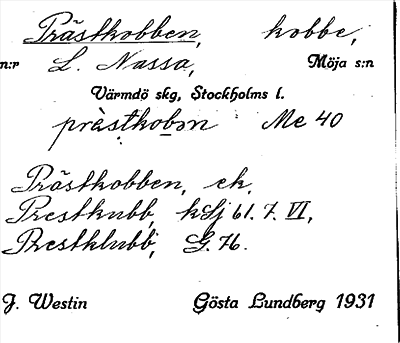 Prästkobben, kobbe,
n:r L. Nassa, Möja s:n
Värmdö skg, Stockholms l.
prästkobɘn Me 40
Prästkobben, ek.
Prestkubb, kSj 61. 7. VI,
Prestklubb, G. 76.
J. Westin Gösta Lundberg 1931